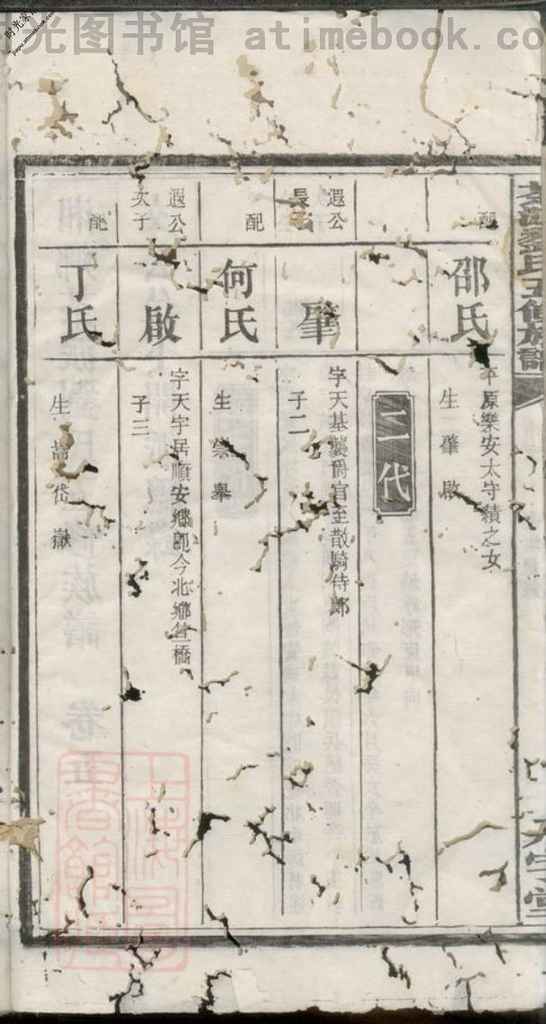 时光图书馆 atimebook.com
劉氏五修族譜
配
邵氏
平原樂安太守績之女
生 肇 啟
二代
遐公
長子
肇
字天基襲爵官至散騎侍郎
子二
配
何氏
生 崇 舉
遐公
次子
啟
字天宇居順安鄉即今北鄉
橋
子三
配
丁氏
生 岱 嶽